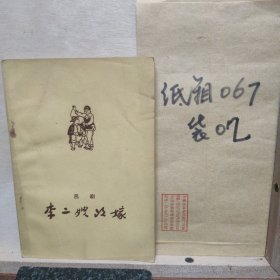 吕剧
李二嫂改嫁
纸箱067
袋02